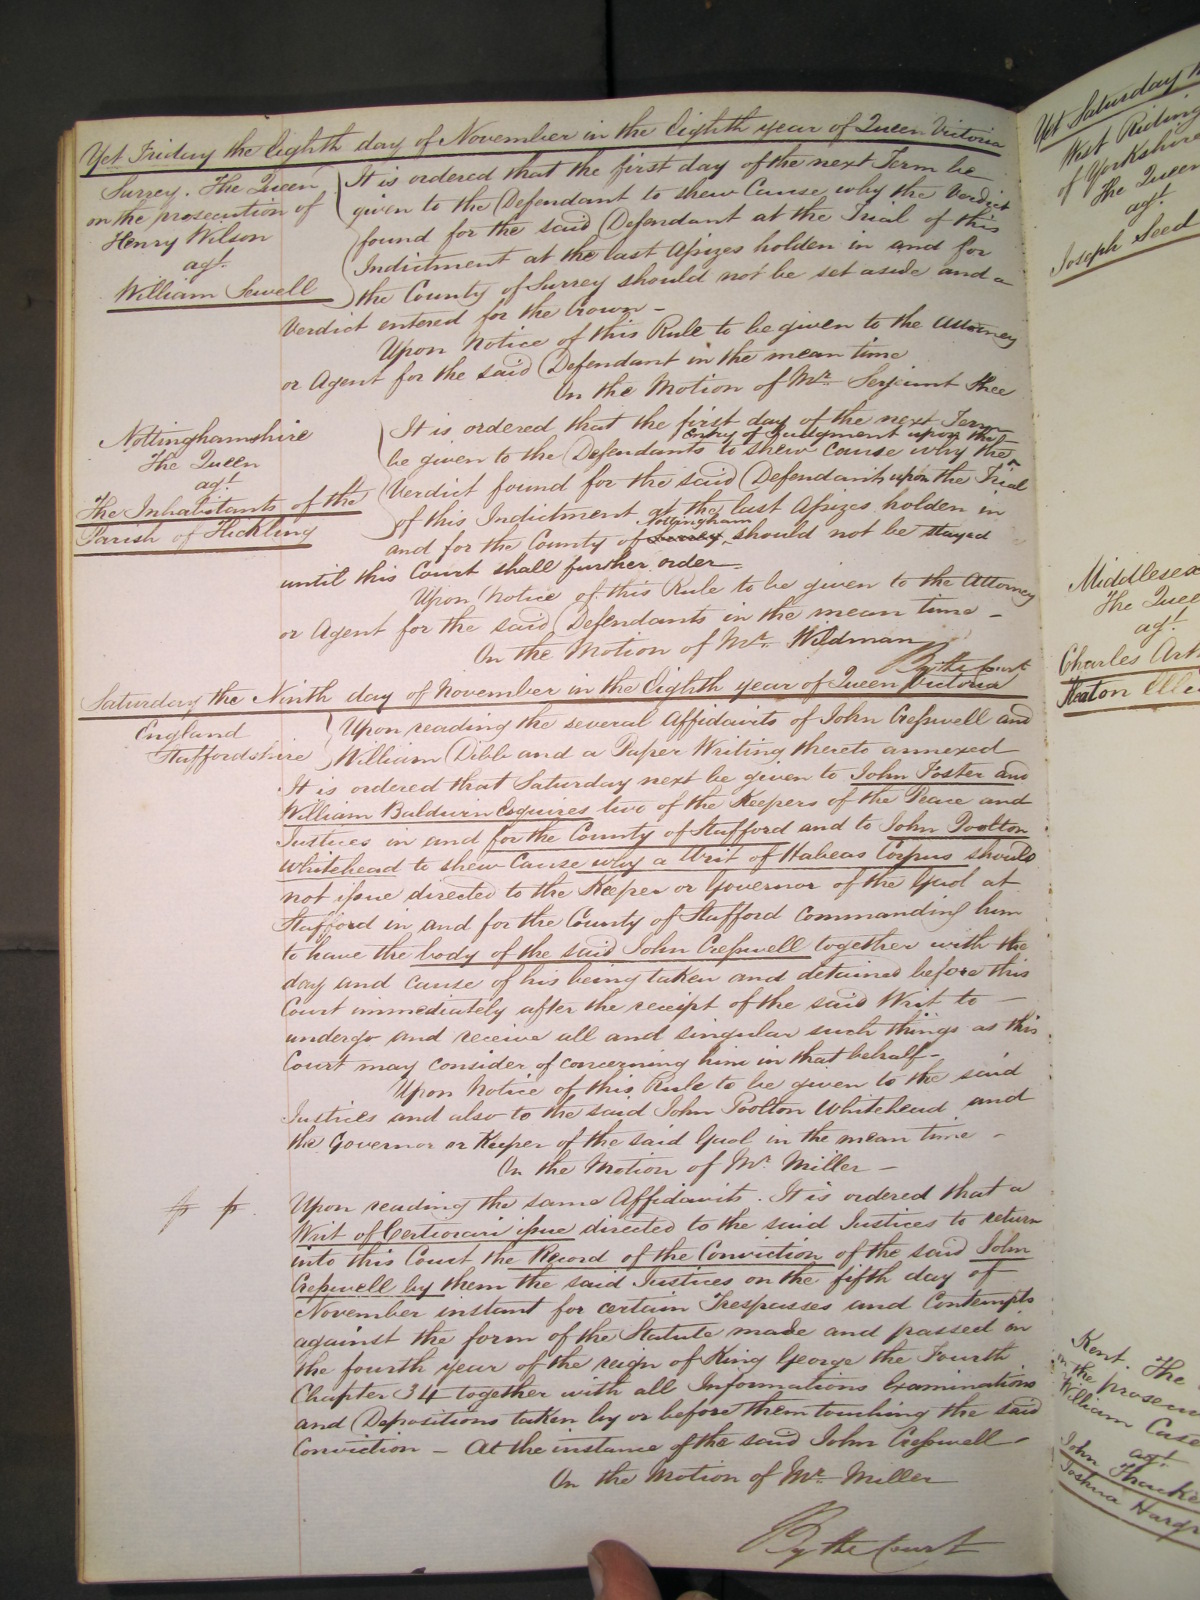 Yet Friday the Eighth day of November in the Eighth year of Queen Victoria
Surrey. The Queen
on the prosecution of
Henry Wilson
agt.
William Sewell
It is ordered that the first day of the next Term be
given to the Defendant to shew Cause why the Verdict
found for the said Defendant at the Trial of this
Indictment at the last Assizes holden in and for
the County of Surrey should not be set aside and a
Verdict entered for the Crown -
Upon Notice of this Rule to be given to the Attorney
or Agent for the said Defendant in the mean time
On the Motion of Mr. Serjeant Shee
Nottinghamshire
The Queen
agt.
The Inhabitants of the
Parish of Hickling
It is ordered that the first day of the next Term
entry of Judgment upon the
be given to the Defendants to shew Cause why the
Verdict found for the said Defendants upon the Trial
of this Indictment at the last Assizes holden in
Nottingham
and for the County of Surrey should not be stayed
until this Court shall further order -
Upon Notice of this Rule to be given to the Attorney
or Agent for the said Defendants in the mean time -
On the Motion of Mr. Wildman
By the Court
Saturday the Ninth day of November in the Eighth year of Queen Victoria
England
Staffordshire
Upon reading the several Affidavits of John Cresswell and
William Dibb and a Paper Writing thereto annexed
It is ordered that Saturday next be given to John Foster and
William Baldwin Esquires two of the Keepers of the Peace and
Justices in and for the County of Stafford and to John Poolton
Whitehead to shew Cause why a Writ of Habeas Corpus should
not issue directed to the Keeper or Governor of the Gaol at
Stafford in and for the County of Stafford commanding him
to have the body of the said John Cresswell together with the
day and cause of his being taken and detained before this
Court immediately after the receipt of the said Writ to -
undergo and receive all and singular such things as this
Court may consider of concerning him in that behalf -
Upon Notice of this Rule to be given to the said
Justices and also to the said John Poolton Whitehead and
the Governor or Keeper of the said Gaol in the mean time -
On the Motion of Mr. Miller -
Upon reading the same Affidavits. It is ordered that a
Writ of Certiorari issue directed to the said Justices to return
into this Court the Record of the Conviction of the said John
Cresswell by them the said Justices on the fifth day of
November instant for certain Trespasses and Contempts
against the form of the Statute made and passed in
the fourth year of the reign of King George the Fourth
Chapter 34 together with all Informations Examinations
and Depositions taken by or before them touching the said
Conviction - At the instance of the said John Cresswell -
On the Motion of Mr. Miller
By the Court
Yet Saturday
West Riding
of Yorkshire
The Queen
agt.
Joseph Seed
Middlesex
The Queen
agt.
Charles
Kent. The
on the
William Case
agt.
John
Joshua